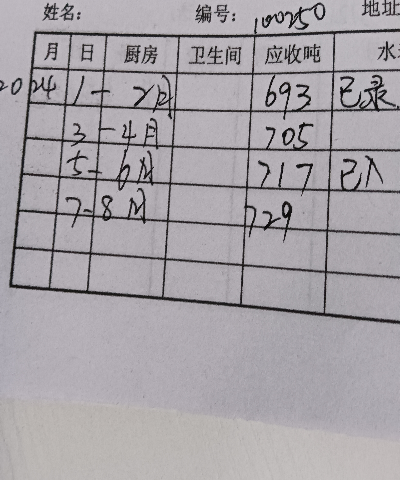 姓名： 编号：100250 地址
月 日 厨房 卫生间 应收吨 水
2024 1-2月 693 已录
3-4月 705
5-6月 717 已入
7-8月 729